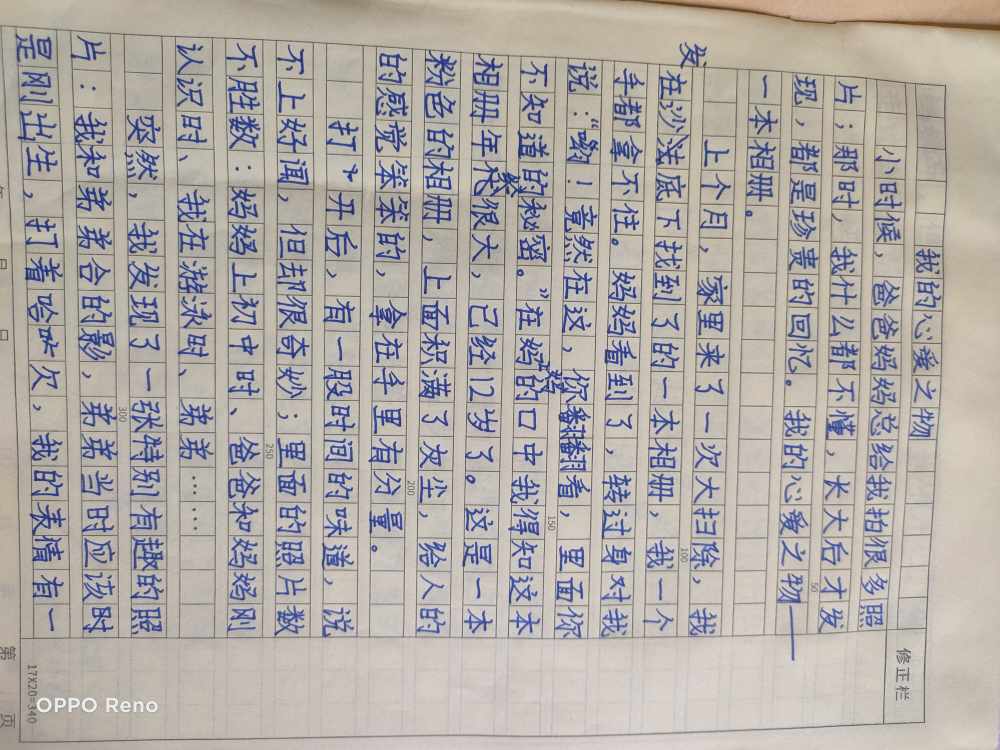 我的心爱之物
小时候，爸爸妈妈总给我拍很多照
片；那时，我什么都不懂，长大后才发
现，都是珍贵的回忆。我的心爱之物——
一本相册。
上个月，家里来了一次大扫除，我
发
在沙法底下找到了的一本相册，我一个
手都拿不住。妈妈看到了，转过身对我
说：“哟！竟然在这，你翻翻看，里面你
不知道的秘密。”在妈妈的口中我得知这本
相册年代很大，已经12岁了。这是一本
粉色的相册，上面积满了灰尘，给人的
的感觉笨笨的，拿在手里有分量。
打开后，有一股时间的味道，说
不上好闻，但却很奇妙；里面的照片数
不胜数：妈妈上初中时、爸爸和妈妈刚
认识时、我在游泳时、弟弟……
突然，我发现了一张特别有趣的照
片：我和弟弟合的影，弟弟当时应该时
是刚出生，打着哈欠，我的表情有一
50
100
150
200
250
300
修正栏
17X20=340
第 页
OPPO Reno